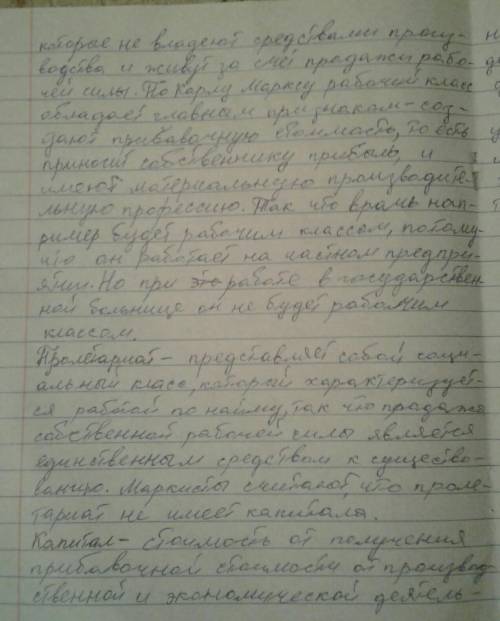 которые не владеют средствами произ-
водства и живут за счёт продажи рабо-
чей силы. По Карлу Марксу рабочий класс
обладает главным признаком - соз-
дают прибавочную стоимость, то есть
приносит собственнику прибыль, и
имеют материальную производите-
льную профессию. Так что врачь нап-
ример будет рабочим классом, потому-
что он работает на частном предпри-
ятии. Но при работе в государствен-
ной больнице он не будет рабочим
классом.
Пролетариат - представляет собой соци-
альный класс, который характеризует-
ся работой по найму, так что продажа
собственной рабочей силы является
единственным средством к существо-
ванию. Маркисты считают, что проле-
тариат не имеет капитала.
Капитал - стоимость от получения
прибавочной стоимости от производ-
ственной и экономической деятель-